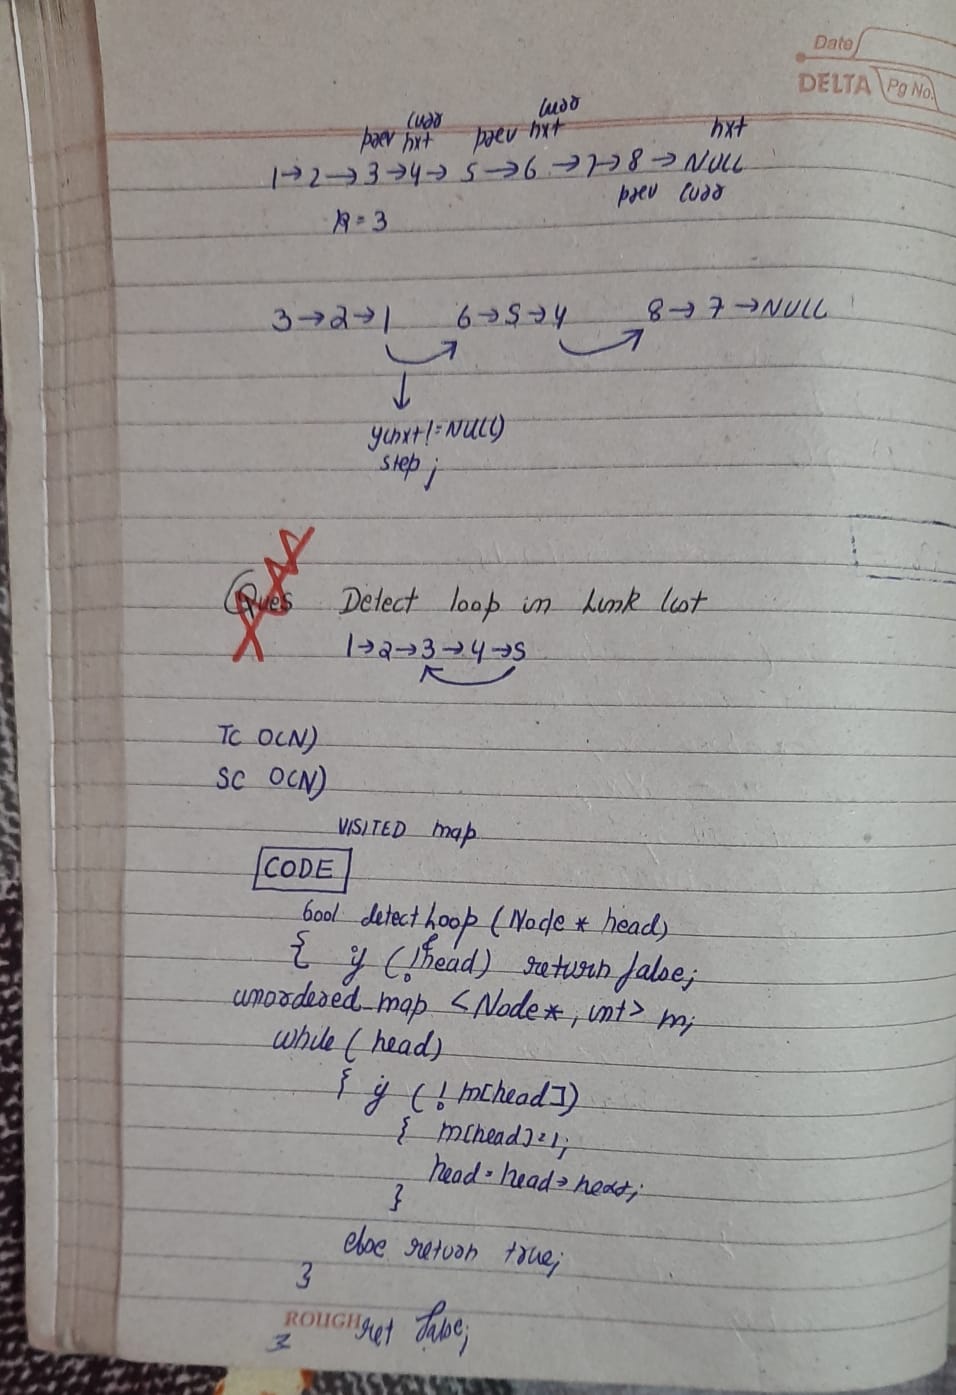 Date
DELTA Pg No.
curr curr
prev nxt prev nxt nxt
1→2→3→4→5→6→7→8→NULL
prev curr
k = 3
3→2→1 6→5→4 8→7→NULL
if(nxt!=NULL)
step;
Ques Detect loop in Link list
1→2→3→4→5
TC O(N)
SC O(N)
VISITED map
CODE
bool detectLoop (Node * head)
{ if (!head) return false;
unordered_map <Node*, int> m;
while (head)
{ if (! m[head])
{ m[head]=1;
head = head→next;
}
else return true;
}
ROUGH ret false;
}